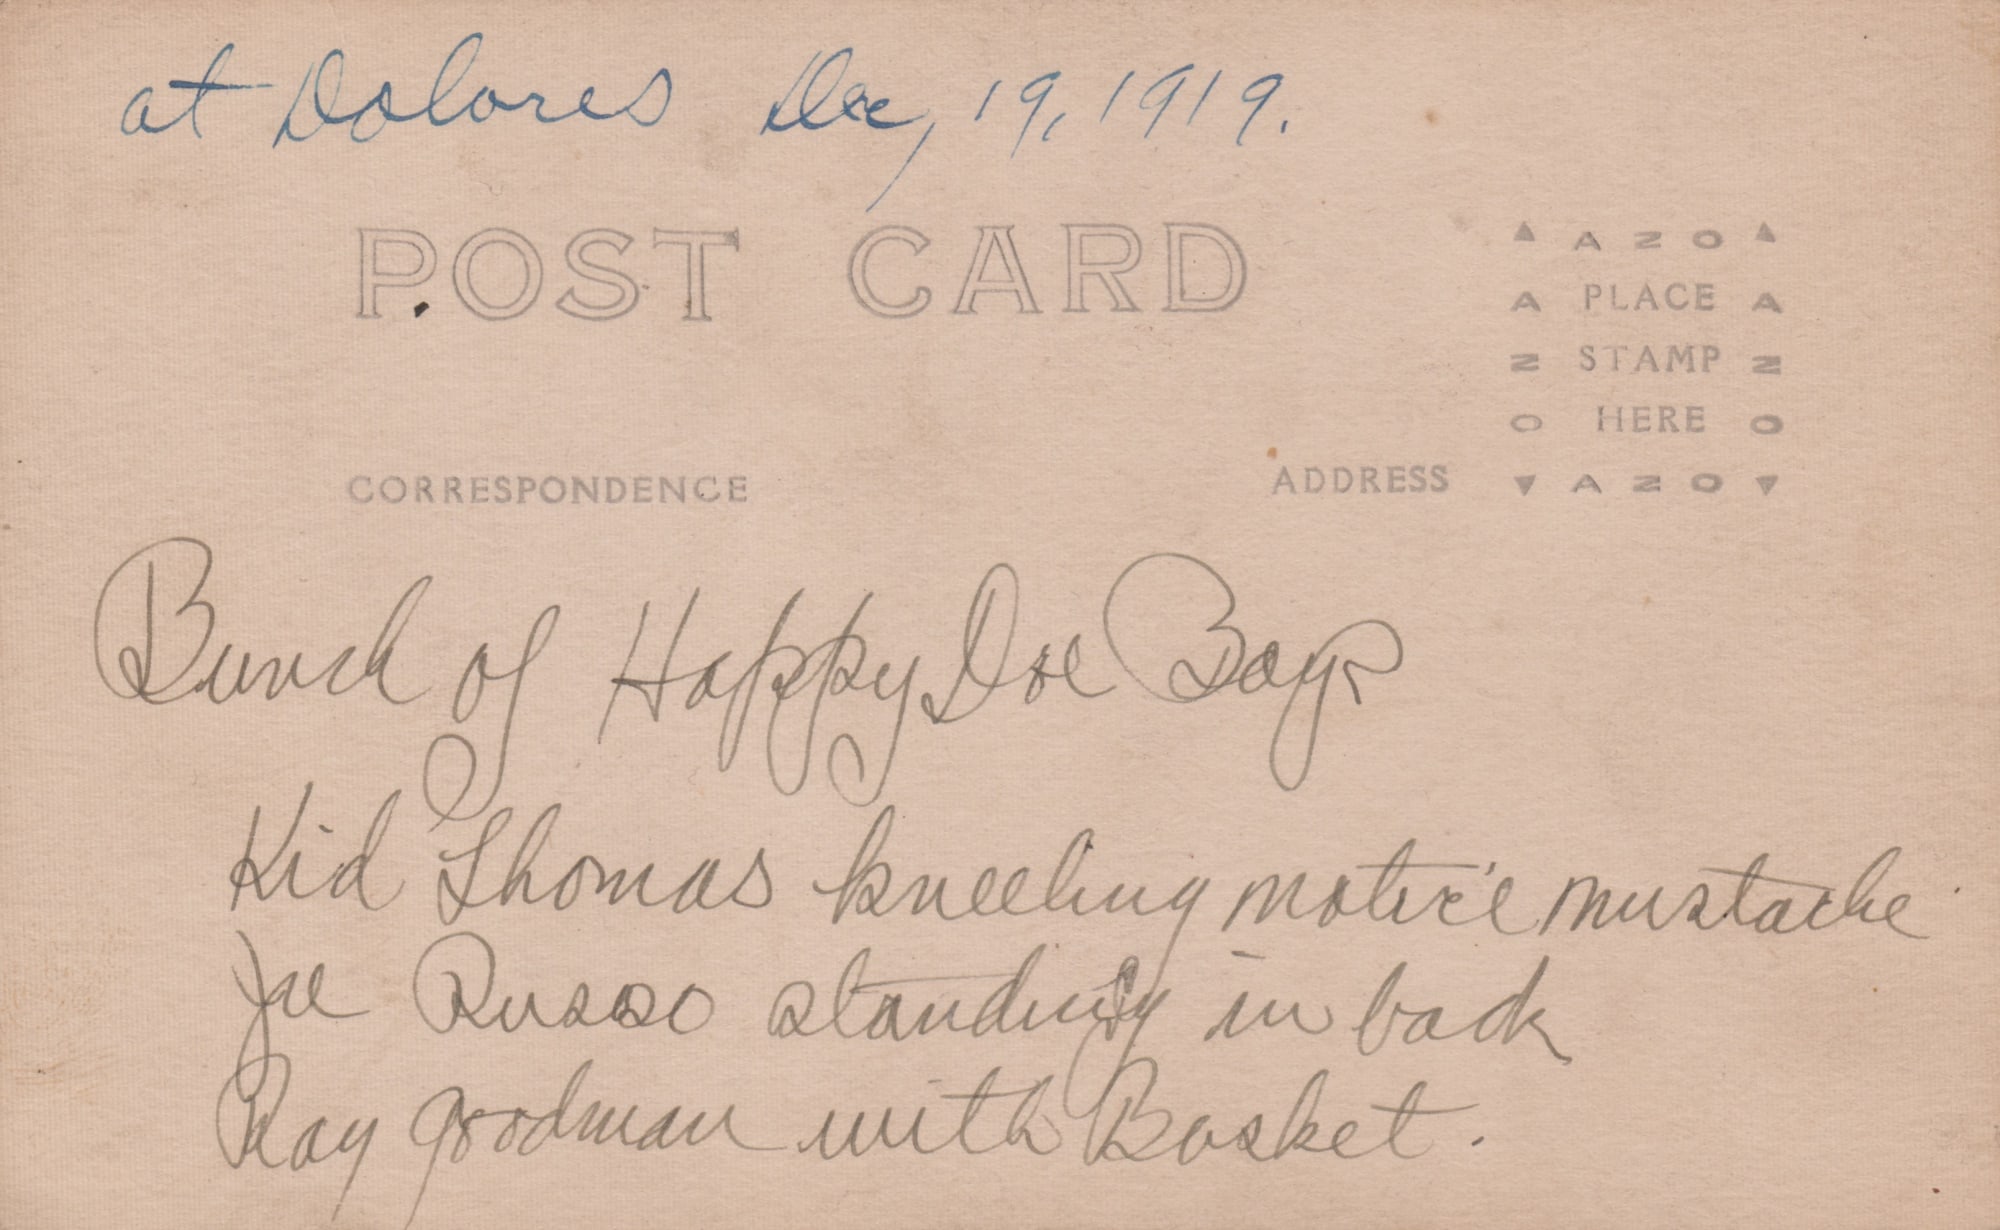 at Dolores Dec, 19, 1919.
POST CARD
▲ AZO ▲
A PLACE A
Z STAMP Z
O HERE O
▼ AZO ▼
CORRESPONDENCE
ADDRESS
Bunch of Happy Doe Boys
Kid Thomas kneeling notice mustache
Joe Russo standing in back
Ray Goodman with Basket.